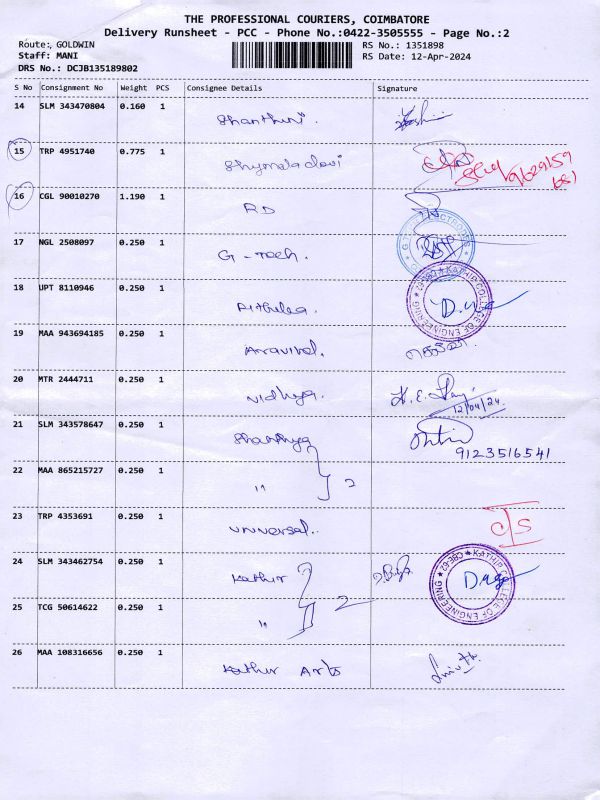 THE PROFESSIONAL COURIERS, COIMBATORE
Delivery Runsheet - PCC - Phone No.:0422-3505555 - Page No.:2
Route: GOLDWIN
RS No.: 1351898
Staff: MANI
RS Date: 12-Apr-2024
DRS No.: DCJB135189802
S No Consignment No Weight PCS Consignee Details Signature
14 SLM 343470804 0.160 1 Shanthini.
15 TRP 4951740 0.775 1 Shymala devi
16 CGL 90010270 1.190 1 RD
17 NGL 2508097 0.250 1 G-Tech.
18 UPT 8110946 0.250 1
KATHIR COLLEGE OF ENGINEERING
19 MAA 943694185 0.250 1
20 MTR 2444711 0.250 1 Vidhya.
12/04/24
21 SLM 343578647 0.250 1
9123516541
22 MAA 865215727 0.250 1 " 2
23 TRP 4353691 0.250 1 Universal. c/s
24 SLM 343462754 0.250 1 Kathir
KATHIR COLLEGE OF ENGINEERING
25 TCG 50614622 0.250 1 " 2
26 MAA 108316656 0.250 1 Kathir Arts